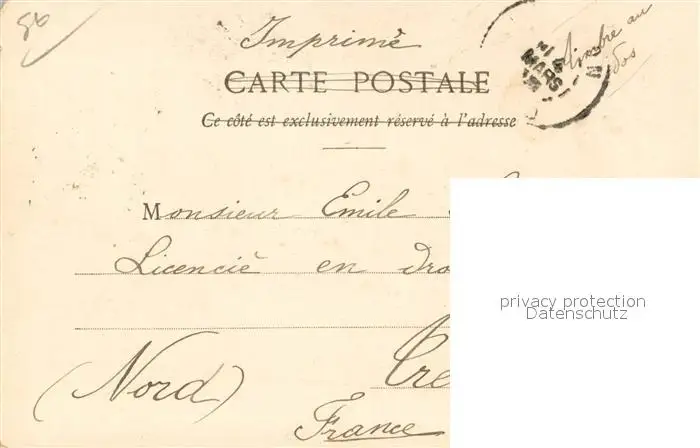 86
Imprimé
Timbre au
dos
MARS
N
CARTE POSTALE
Ce côté est exclusivement réservé à l'adresse
Monsieur Emile
Licencié en dro
privacy protection
Datenschutz
(Nord) Cre
France